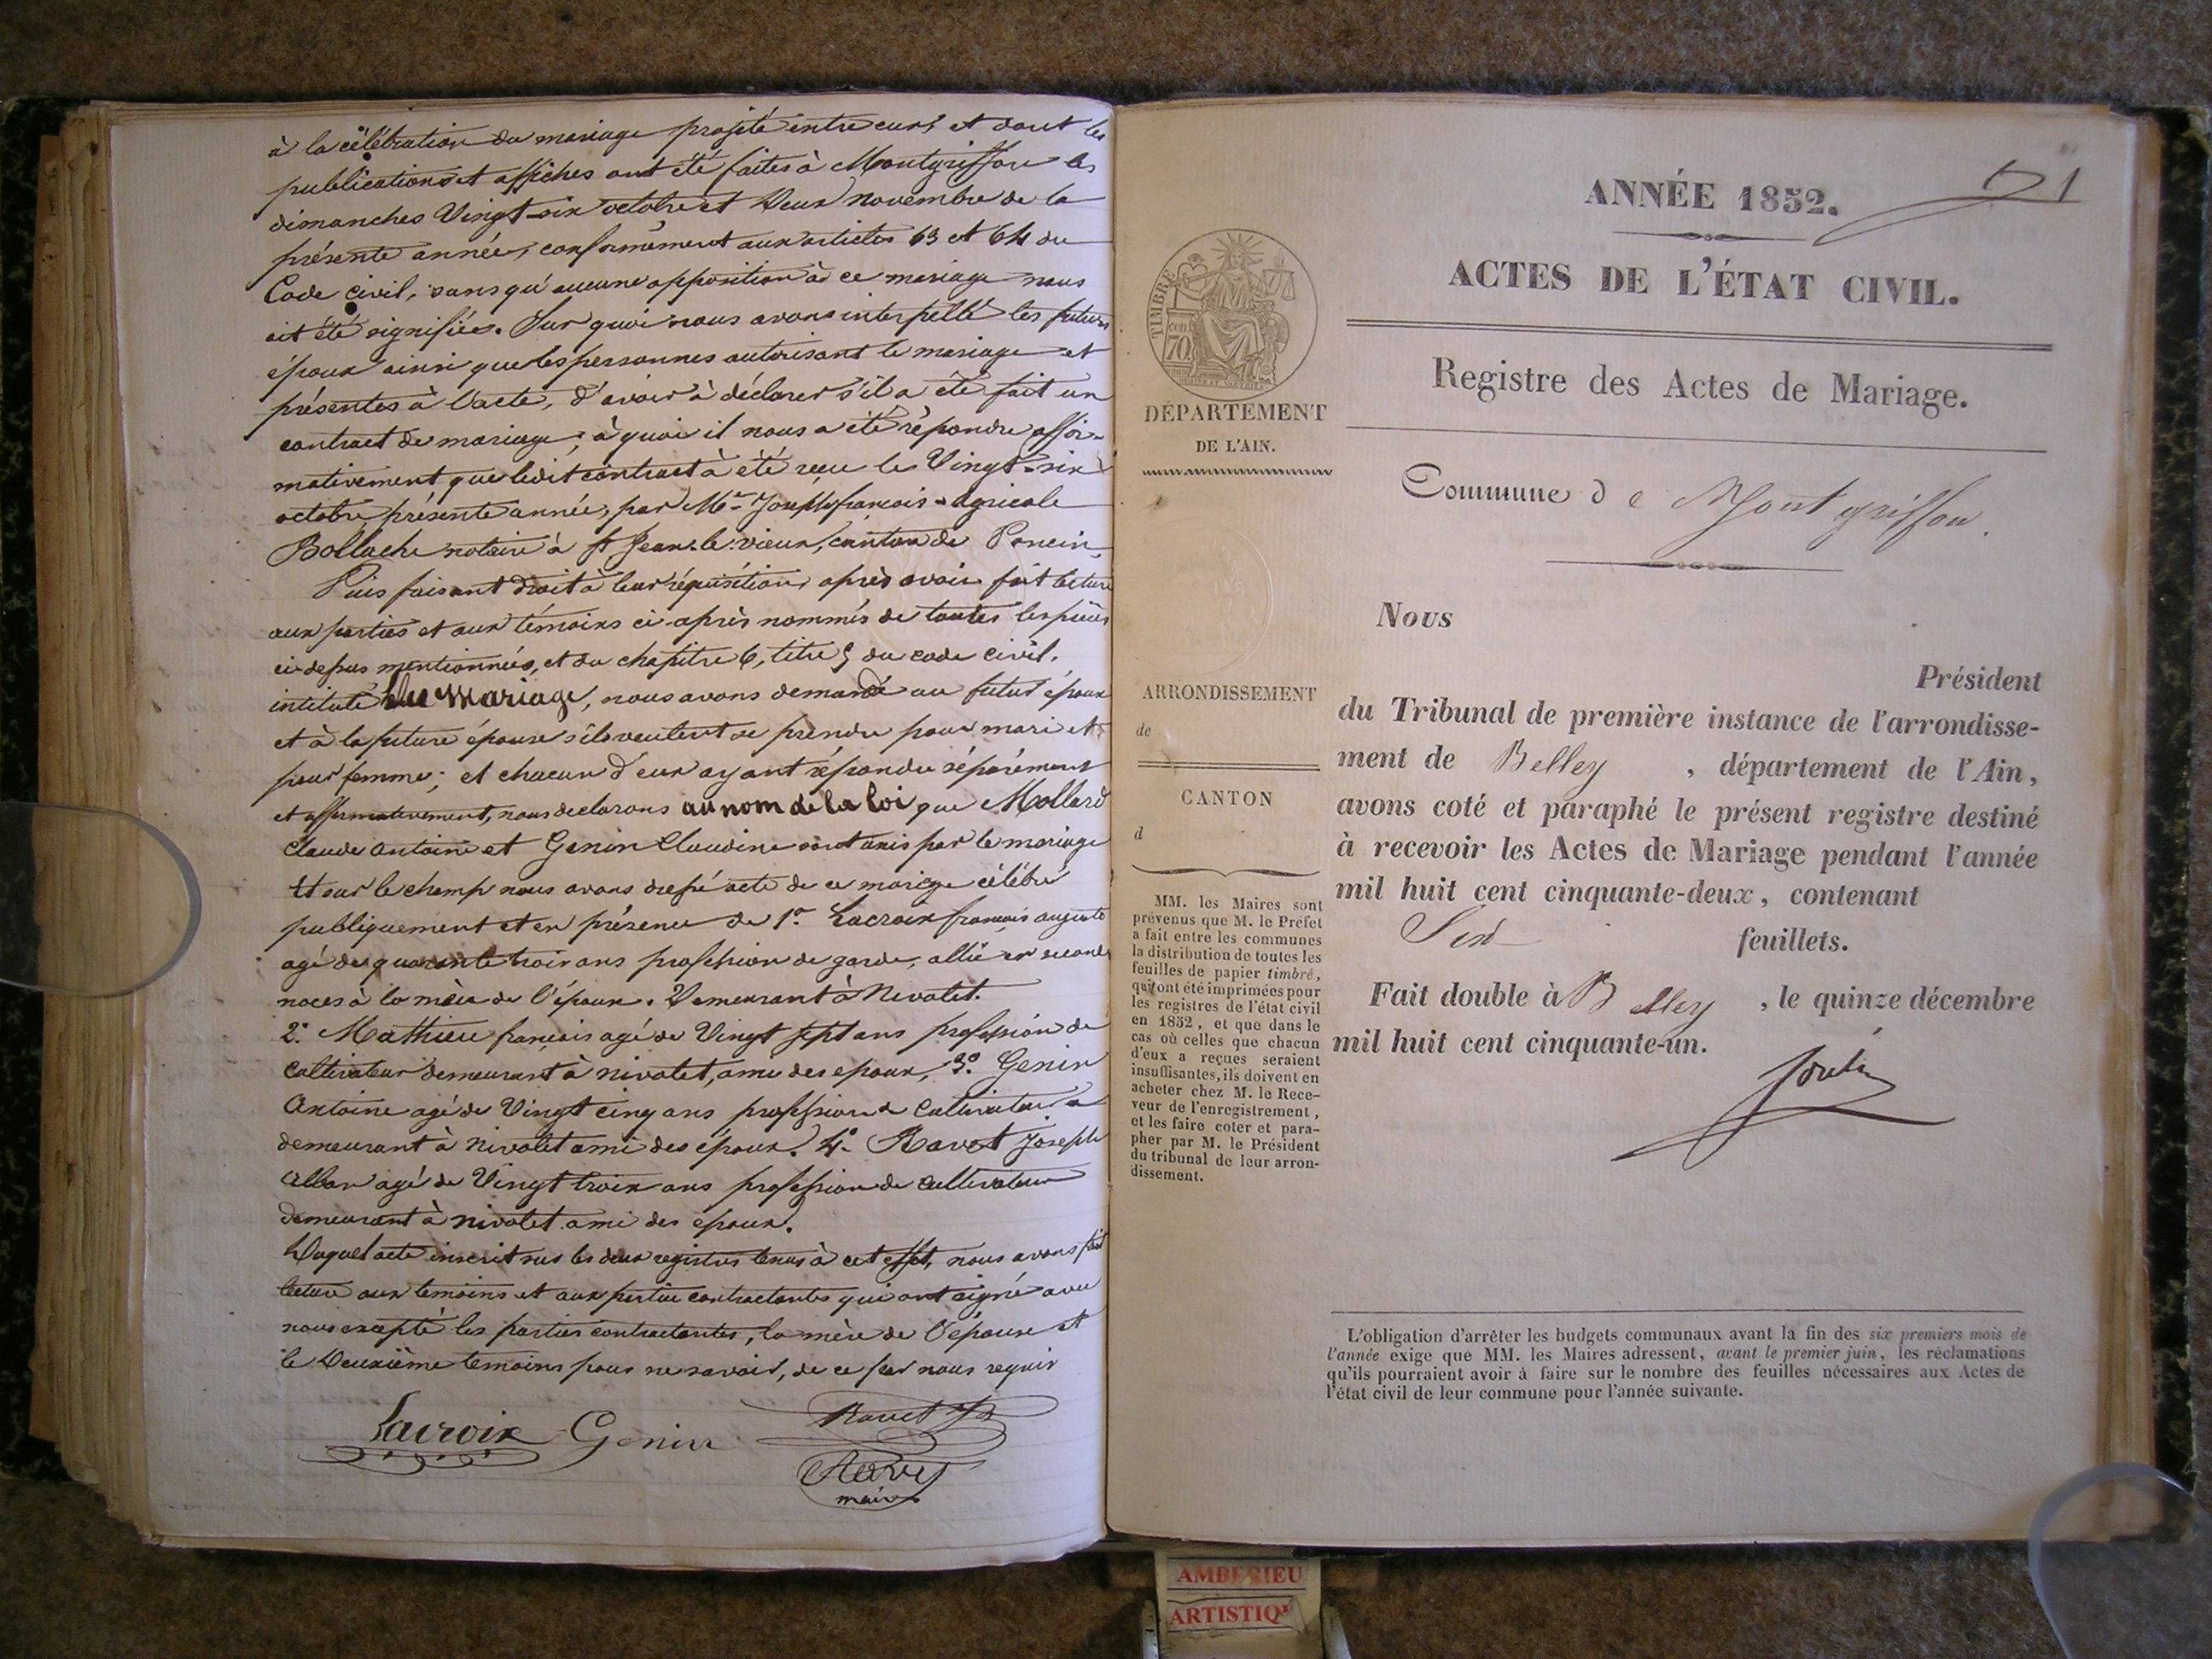 à la célébration du mariage projété entre eux, et dont les
publications et affiches ont été faites à Montgriffon les
dimanches Vingt-six octobre et deux novembre de la
présente année, conformément aux articles 63 et 64 du
Code civil, sans qu'aucune opposition à ce mariage nous
ait été signifiée. Sur quoi nous avons interpellé les futurs
époux ainsi que les personnes autorisant le mariage et
présentes à l'acte, d'avoir à déclarer s'il a été fait un
contract de mariage; à quoi il nous a été répondu affir-
mativement que ledit contract à été reçu le Vingt-six
octobre présente année, par Me Joseph françois-Agricole
Bollache notaire à St Jean-le-vieux, canton de Poncin,
Puis faisant droit à leur réquisition, après avoir fait lecture
aux parties et aux témoins ci-après nommés de toutes les pièces
ci-dessus mentionnées, et du chapitre 6, titre 5 du code civil.
intitulé Du Mariage, nous avons demandé au futur époux
et à la future épouse s'ils veulent se prendre pour mari et
pour femme; et chacun d'eux ayant répondu séparément
et affirmativement, nous declarons au nom de la loi que Mollard
Claude Antoine et Genin Claudine sont unis par le mariage
Et sur le champ nous avons dressé acte de ce mariage célébré
publiquement et en présence de 1° Lacroix françois auguste
agé de quarante trois ans profession de garde, allié en secondes
noces à la mère de l'époux. Demeurant à Nivolet.
2° Mathieu françois agé de Vingt sept ans profession de
Cultivateur demeurant à nivolet, ami des epoux, 3° Genin
Antoine agé de Vingt cinq ans profession de Cultivateur
demeurant à nivolet ami des époux. 4° Ravet Joseph
Alban agé de Vingt trois ans profession de cultivateur
demeurant à nivolet ami des epoux.
Duquel acte inscrit sur les deux registres tenus à cet effet, nous avons fait
lecture aux temoins et aux parties contractantes qui ont signé avec
nous excepté les parties contractantes, la mère de l'épouse et
le deuxième temoins pour ne savoir, de ce par nous requis
Lacroix Genin Ravet
maire
1
ANNÉE 1852.
ACTES DE L'ÉTAT CIVIL.
Registre des Actes de Mariage.
Commune de Montgriffon
TIMBRE
70
DÉPARTEMENT
DE L'AIN.
ARRONDISSEMENT
de
CANTON
d
MM. les Maires sont
prévenus que M. le Préfet
a fait entre les communes
la distribution de toutes les
feuilles de papier timbré,
qui ont été imprimées pour
les registres de l'état civil
en 1852, et que dans le
cas où celles que chacun
d'eux a reçues seraient
insuffisantes, ils doivent en
acheter chez M. le Rece-
veur de l'enregistrement,
et les faire coter et para-
pher par M. le Président
du tribunal de leur arron-
dissement.
Nous
Président
du Tribunal de première instance de l'arrondisse-
ment de Belley , département de l'Ain,
avons coté et paraphé le présent registre destiné
à recevoir les Actes de Mariage pendant l'année
mil huit cent cinquante-deux, contenant
Six feuillets.
Fait double à Belley , le quinze décembre
mil huit cent cinquante-un.
L'obligation d'arrêter les budgets communaux avant la fin des six premiers mois de
l'année exige que MM. les Maires adressent, avant le premier juin, les réclamations
qu'ils pourraient avoir à faire sur le nombre des feuilles nécessaires aux Actes de
l'état civil de leur commune pour l'année suivante.
AMBERIEU
ARTISTIQ